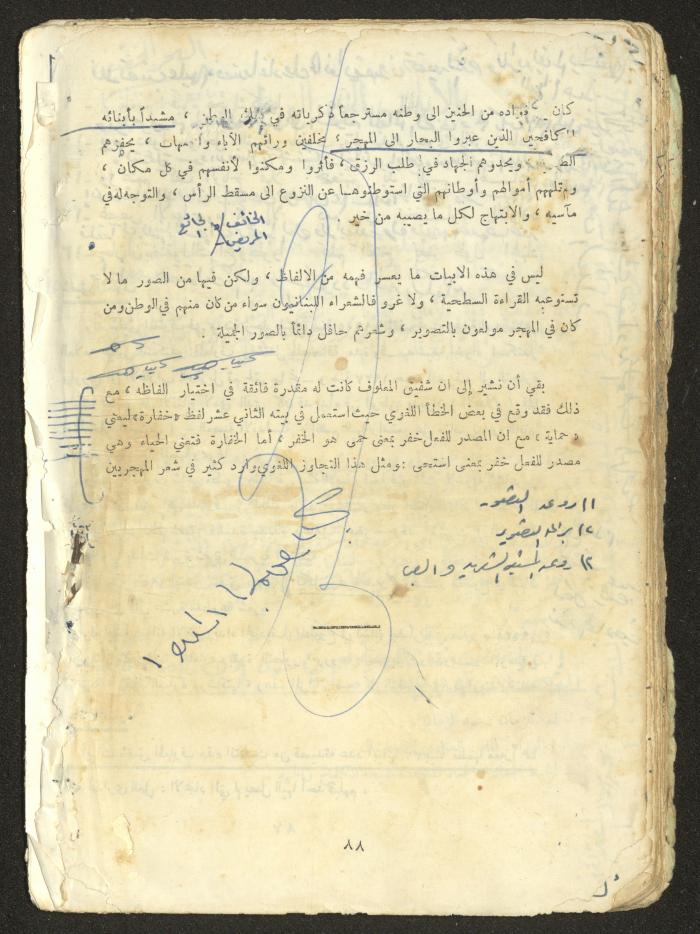 كان فؤاده من الحنين الى وطنه مسترجعاً ذكرياته في ذلك الوطن ، مشيداً بأبنائه
المكافحين الذين عبروا البحار الى المهجر ، مخلفين وراءهم الآباء والأمهات ، يحفزهم
ويحدوهم الجهاد في طلب الرزق ، فأثروا ومكنوا لأنفسهم في كل مكان ،
ولم تلههم أموالهم وأوطانهم التي استوطنوهــا عن النزوع الى مسقط الرأس ، والتوجه له في
مآسيه ، والابتهاج لكل ما يصيبه من خير .
الخائف
المريض
ليس في هذه الابيات ما يعسر فهمه من الالفاظ ، ولكن فيها من الصور ما لا
تستوعبه القراءة السطحية ، ولا غرو فالشعراء اللبنانيون سواء من كان منهم في الوطن ومن
كان في المهجر مولعون بالتصوير ، وشعرهم حافل دائماً بالصور الجميلة .
بقي أن نشير إلى ان شفيق المعلوف كانت له مقدرة فائقة في اختيار الفاظه ، مع
ذلك فقد وقع في بعض الخطأ اللغوي حيث استعمل في بيته الثاني عشر لفظ «خفارة» ليعني
« حماية » مع ان المصدر للفعل خفر بمعنى حمى هو الخفر ، أما الخفارة فتعني الحياء وهي
مصدر للفعل خفر بمعنى استحى : ومثل هذا التجاوز اللغوي وارد كثير في شعر المهجريين
١) روعة التصوير
٢) براعة التصوير
٣) روعة
٨٨